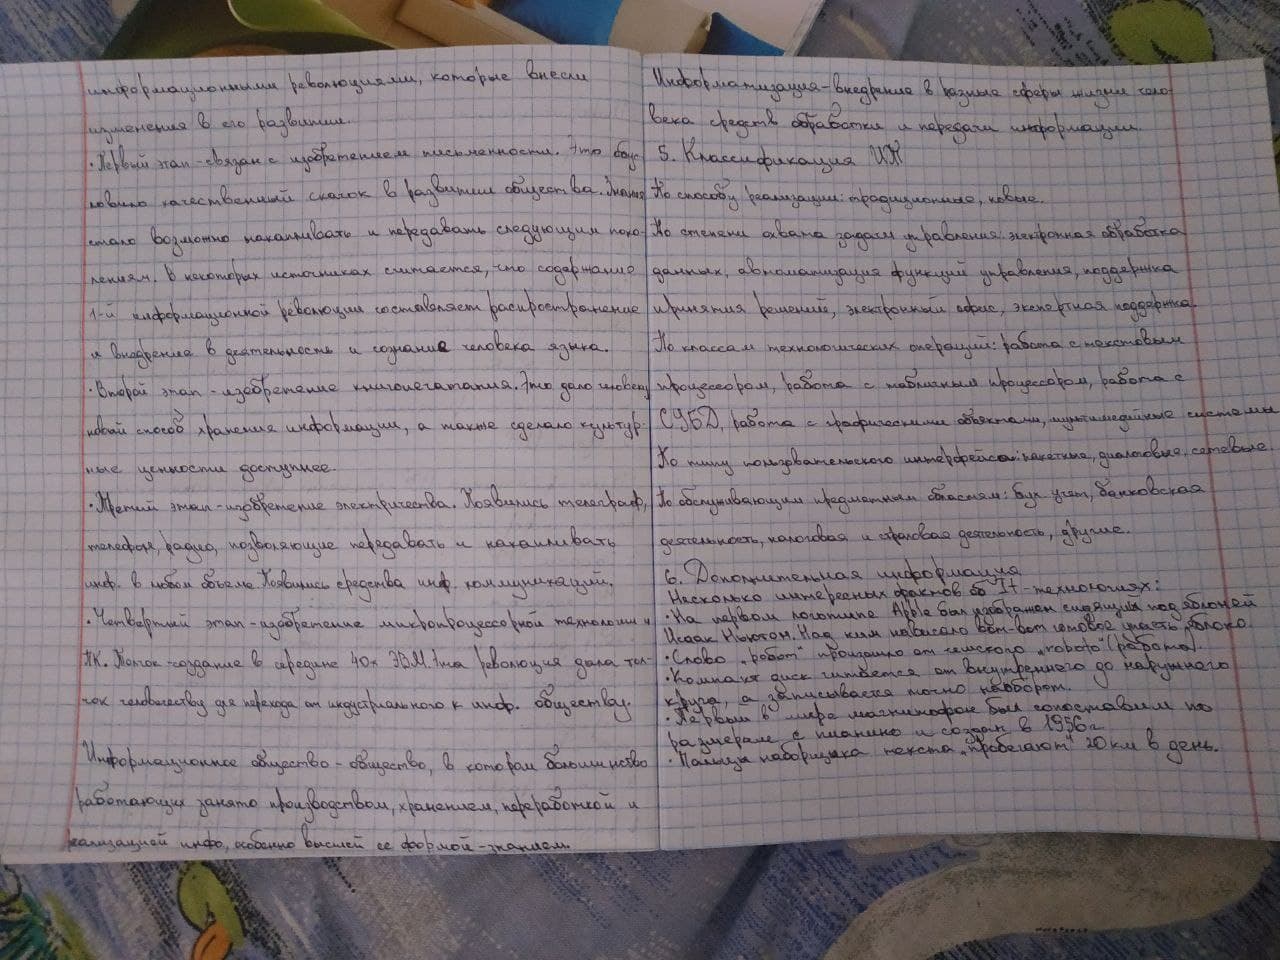 информационными революциями, которые внесли
изменения в его развитии.
• Первый этап - связан с изобретением письменности. Это обус-
ловило качественный скачок в развитии общества. Знания
стало возможно накапливать и передавать следующим поко-
лениям. В некоторых источниках считается, что содержание
1-й информационной революции составляет распространение
и внедрение в деятельность и сознание человека языка.
• Второй этап - изобретение книгопечатания. Это дало человеку
новый способ хранения информации, а также сделало культур-
ные ценности доступнее.
• Третий этап - изобретение электричества. Появились телеграф,
телефон, радио, позволяющие передавать и накапливать
инф. в любом объеме. Появились средства инф. коммуникаций.
• Четвертый этап - изобретение микропроцессорной технологии и
ПК. Толчок - создание в середине 40х ЭВМ. Эта революция дала тол-
чок человечеству для перехода от индустриального к инф. обществу.
Информационное общество - общество, в котором большинство
работающих занято производством, хранением, переработкой и
реализацией инфо, особенно высшей ее формой - знанием.
Информатизация - внедрение в разные сферы жизни чело-
века средств обработки и передачи информации.
5. Классификация ИТ
По способу реализации: традиционные, новые.
По степени охвата задач управления: электронная обработка
данных, автоматизация функций управления, поддержка
принятия решений, электронный офис, экспертная поддержка.
По классам технологических операций: работа с текстовым
процессором, работа с табличным процессором, работа с
СУБД, работа с графическими объектами, мультимедийные системы
По типу пользовательского интерфейса: пакетные, диалоговые, сетевые.
По обслуживающим предметным областям: бух. учет, банковская
деятельность, налоговая и страховая деятельность, другие.
6. Дополнительная информация
Несколько интересных фактов об It - технологиях:
• На первом логотипе Apple был изображен сидящий под яблоней
Исаак Ньютон. Над ним нависало вот-вот готовое упасть яблоко.
• Слово „робот" произошло от чешского „robota" (работа).
• Компакт диск читается от внутреннего до наружнего
круга, а записывается точно наоборот.
• Первый в мире магнитофон был сопоставим по
размерам с пианино и создан в 1956 г.
• Пальцы наборщика текста „пробегают" 20 км в день.